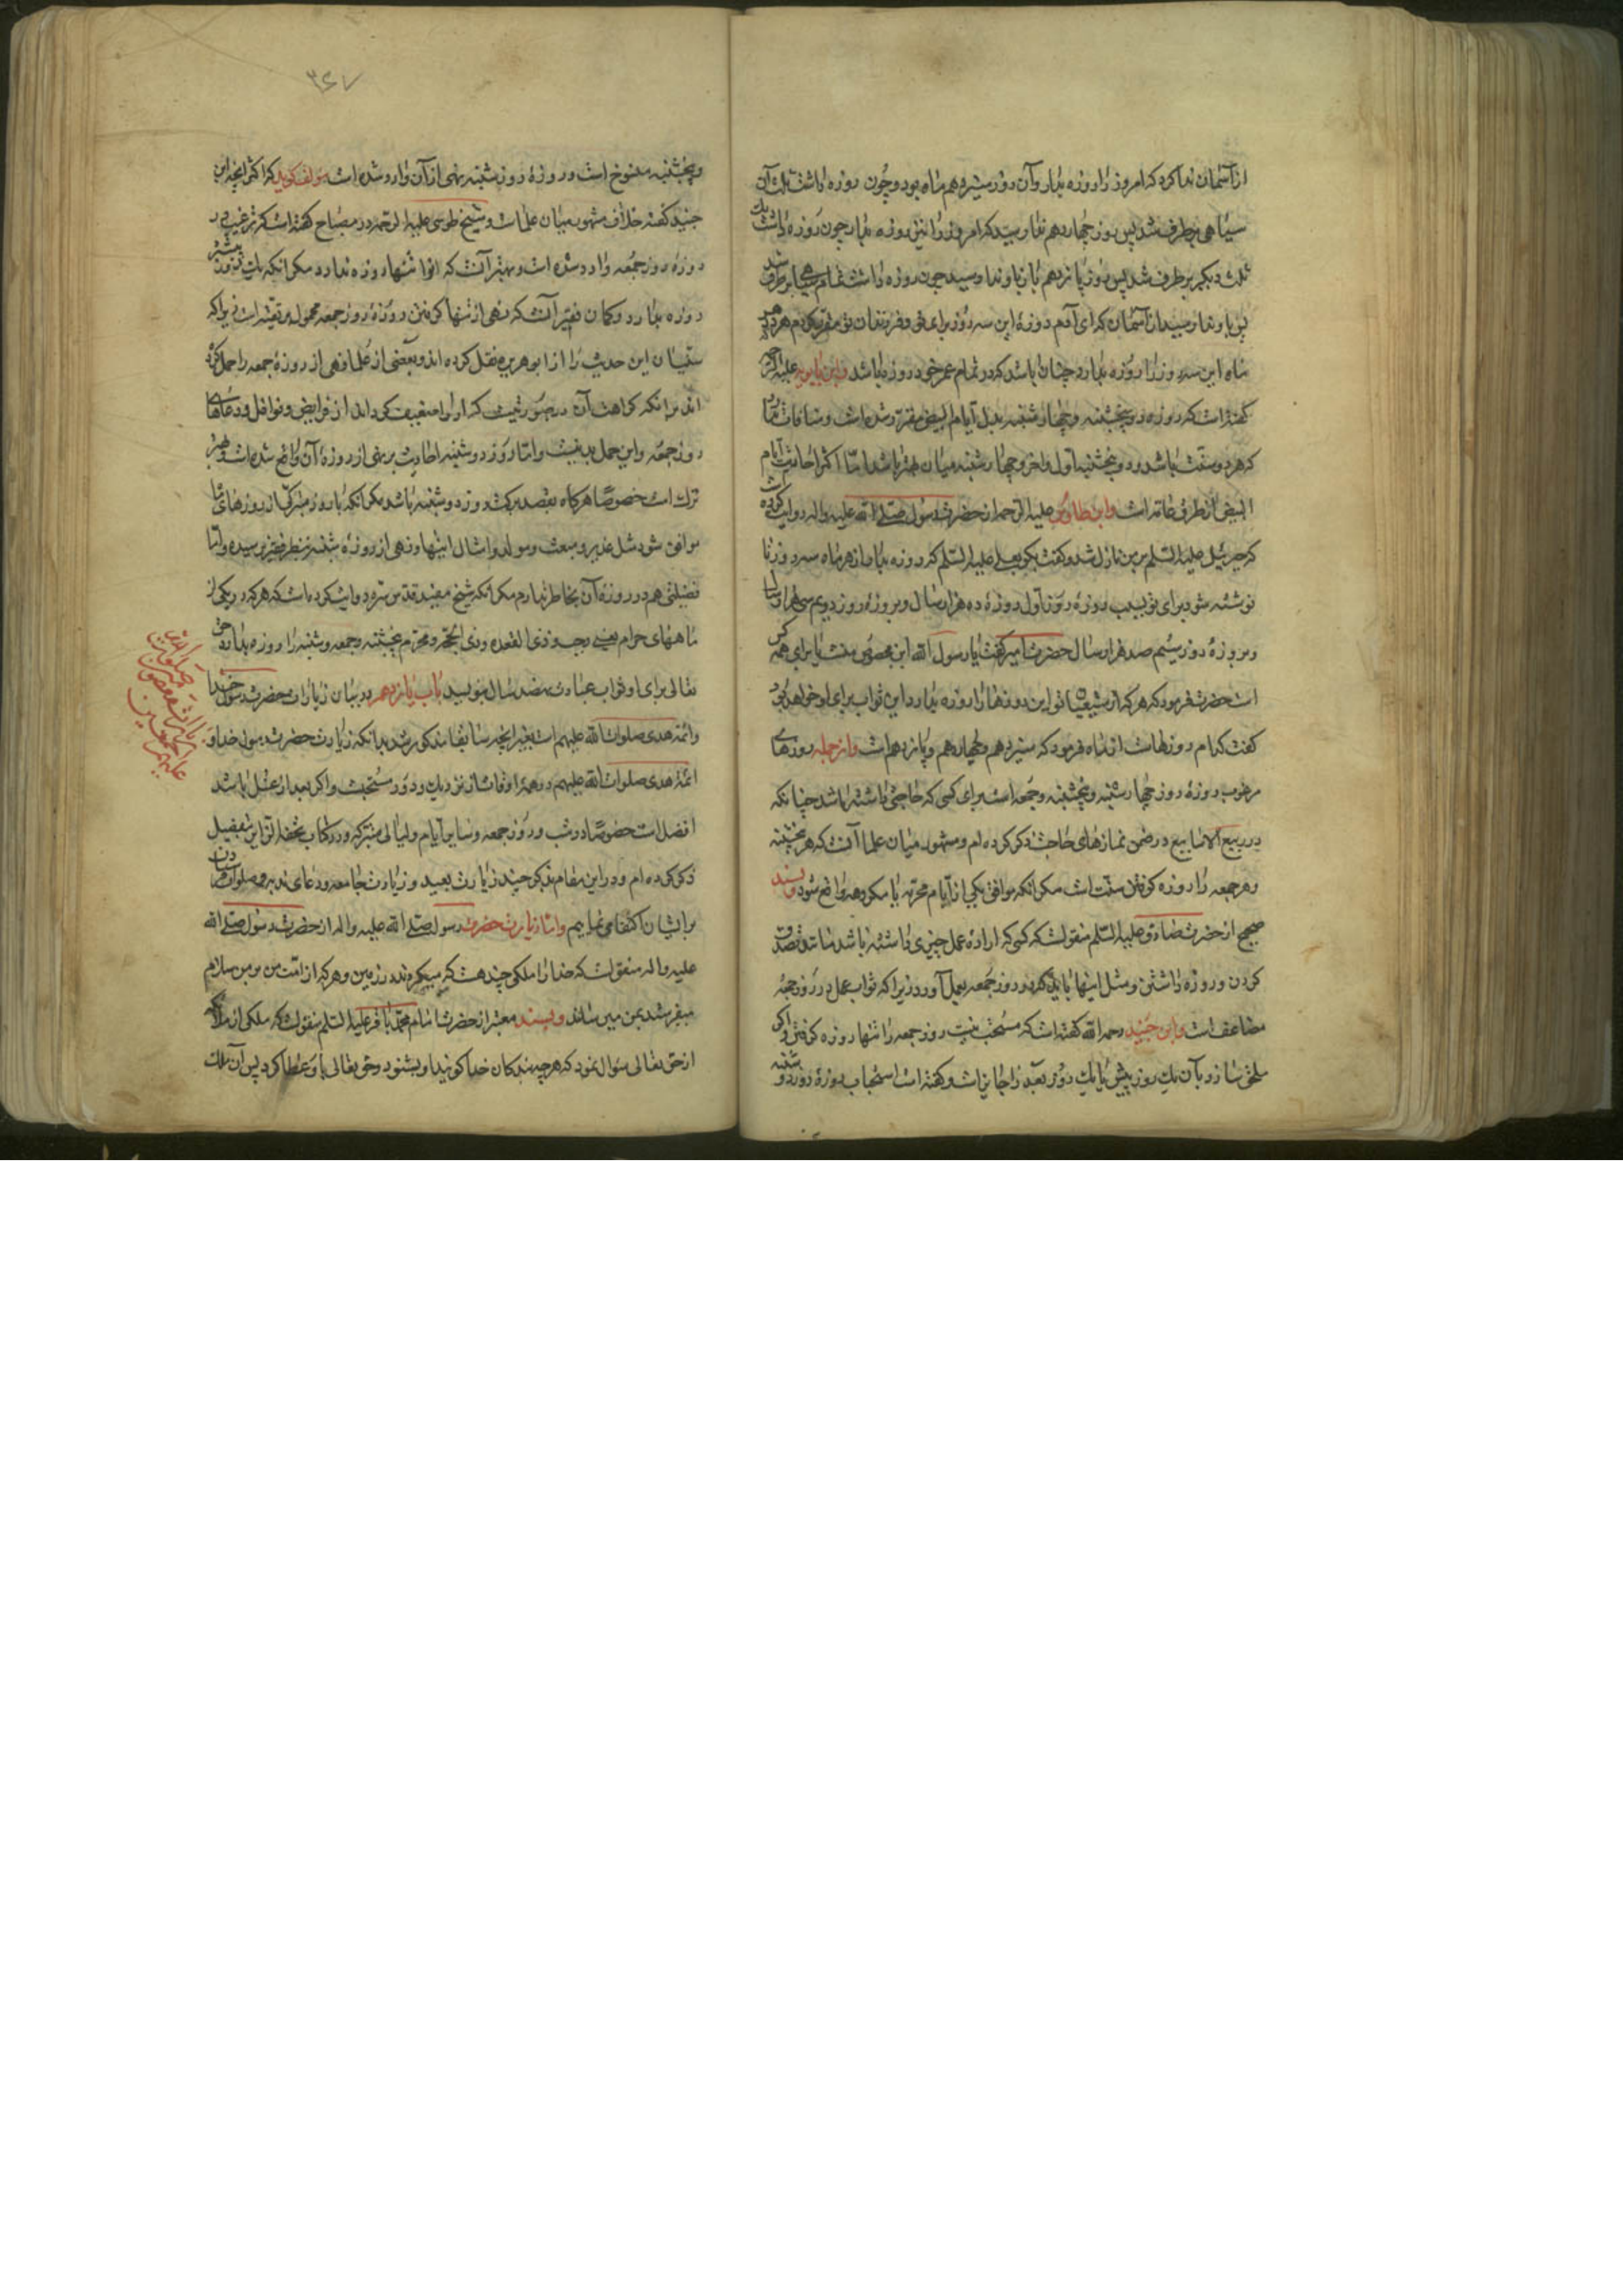 از آسمان ندا کرد که امروز را روزه بدار و آن روز سیزدهم ماه بود و چون روزه داشت ثلث آن
سیاهی برطرف شد پس روز چهاردهم ندا رسید که امروز را نیز روزه بدار چون روزه داشت یک
ثلث دیگر برطرف شد پس روز پانزدهم باز باو ندا رسید چون روزه داشت تمام سیاهی برطرف شد
پس باو ندا رسید از آسمان که ای آدم روزهٔ این سه روز برای تو و فرزندان تو مقرر کردم هر که در هر
ماه این سه روز را روزه بدارد چنان باشد که در تمام عمر خود روزه باشد و ابن بابویه علیه الرحمه
گفته است که روزه دو پنجشنبه و چهارشنبه بدل ایام البیض مقرر شده است و منافات ندارد
که هر دو سنت باشد و دو پنجشنبه اول و آخر و چهارشنبه میان بهتر باشد اما اکثر احادیث ایام
البیض از طرق عامه است و ابن طاوس علیه الرحمه از حضرت رسول صلی الله علیه واله روایت کرده است
که جبرئیل علیه السلم بر من نازل شد و گفت بگو بعلی علیه السلم که روزه بدار از هر ماه سه روز تا
نوشته شود برای تو بسبب روزهٔ روز اول روزهٔ ده هزار سال و بروزهٔ روز دویم سی هزار سال
و بروزهٔ روز سیم صد هزار سال حضرت امیر گفت یا رسول الله این مخصوص منست یا برای همه کس
است حضرت فرمود که هر که از شیعیان تو این روزها را روزه بدارد این ثواب برای او خواهد بود
گفت کدام روزهاست از ماه فرمود که سیزدهم و چهاردهم و پانزدهم است و از جمله روزهای
مرغوب روزهٔ روز چهارشنبه و پنجشنبه و جمعه است برای کسی که حاجتی داشته باشد چنانکه
در ربیع الاسابیع در ضمن نمازهای حاجت ذکر کرده ام و مشهور میان علما آنست که هر پنجشنبه
و هر جمعه را روزه گرفتن سنت است مگر انکه موافق یکی از ایام محرمه یا مکروهه واقع شود و بسند
صحیح از حضرت صادق علیه السلم منقولست که کسی که اراده عمل چیزی داشته باشد مانند تصدق
کردن و روزه داشتن و مثل اینها باید که در روز جمعه بعمل آورد زیرا که ثواب عمل در روز جمعه
مضاعف است و ابن جنید رحمه الله گفته است که مستحب نیست روز جمعه را تنها روزه گرفتن و اگر
ملحق سازد بآن یک روز پیش یا یک روز بعد را جایز است و گفته است استحباب روزهٔ روز دوشنبه
۳۶۷
و پنجشنبه منسوخ است و روزهٔ روز شنبه نهی از آن وارد شده است مؤلف گوید که اکثر انچه ابن
جنید گفته خلاف مشهور میان علماست و شیخ طوسی علیه الرحمه در مصباح گفته است که ترغیب در
روزهٔ روز جمعه وارد شده است و بهتر آنست که انرا تنها روزه ندارد مگر انکه یک روز پیشتر
روزه بدارد و گمان فقیر آنست که نهی از تنها گرفتن روزهٔ روز جمعه محمول بر تقیه است زیرا که
سنیان این حدیث را از ابو هریره نقل کرده اند و بعضی از علما نهی از روزهٔ جمعه را حمل کرده
اند برانکه کراهت آن در صورتیست که او را ضعیف گرداند از فرایض و نوافل و دعاهای
روز جمعه و این حمل بد نیست و اما روز دوشنبه احادیث بر نهی از روزهٔ آن واقع شده است و بهتر
ترک است خصوصا هرگاه بقصد برکت روز دوشنبه باشد مگر انکه با روز متبرکی از روزهای
موافق شود مثل غدیر و مبعث و مولد و امثال اینها و نهی از روزه شنبه بنظر فقیر نرسیده و اما
فضیلتی هم در روزهٔ آن بخاطر ندارم مگر انکه شیخ مفید قدس سره روایت کرده است که هر که در یکی از
ماههای حرام یعنی رجب و ذی القعده و ذی الحجه و محرم پنجشنبه و جمعه و شنبه را روزه بدارد حق
تعالی برای او ثواب عبادت نهصد سال بنویسد باب یازدهم در بیان زیارات حضرت رسول خدا
و ائمه هدی صلوات الله علیهم است بغیر انچه سابقا مذکور شد بدانکه زیارت حضرت رسول خدا و
ائمهٔ هدی صلوات الله علیهم در همهٔ اوقات از نزدیک و دور مستحبست و اگر بعد از غسل باشد
افضل است خصوصا در شب و روز جمعه و سایر ایام و لیالی متبرکه و در کتاب تحفة الزایر بتفصیل
ذکر کرده ام و در این مقام بذکر چند زیارت بعید و زیارت جامعه و دعای ندبه و صلوات فرستادن
بر ایشان اکتفا می نماییم و اما زیارت حضرت رسول صلی الله علیه واله از حضرت رسول صلی الله
علیه واله منقولست که خدا را ملکی چند هست که میگردند در زمین و هر که از امت من بر من سلام
میفرستد بمن میرسانند و بسند معتبر از حضرت امام محمد باقر علیه السلم منقولست که ملکی از ملائکه
از حق تعالی سؤال نمود که هر چه بندگان خدا گویند او بشنود و حق تعالی باو عطا کرد پس آن ملک